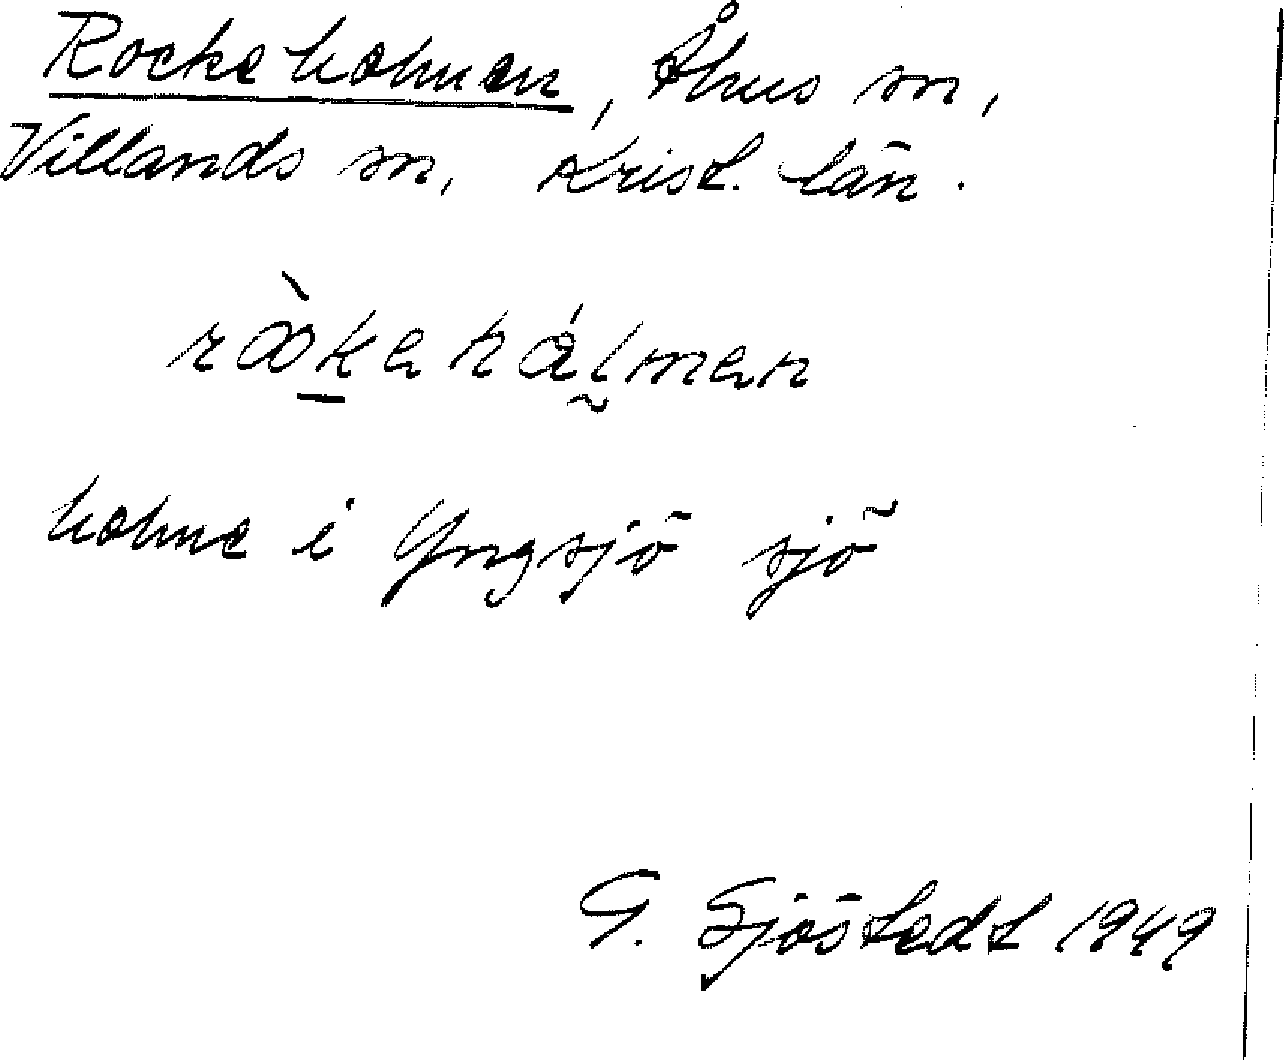 Rockeholmen, Åhus sn,
Villands sn, Krist. län.
holme i Yngsjö sjö
G. Sjöstedt 1949